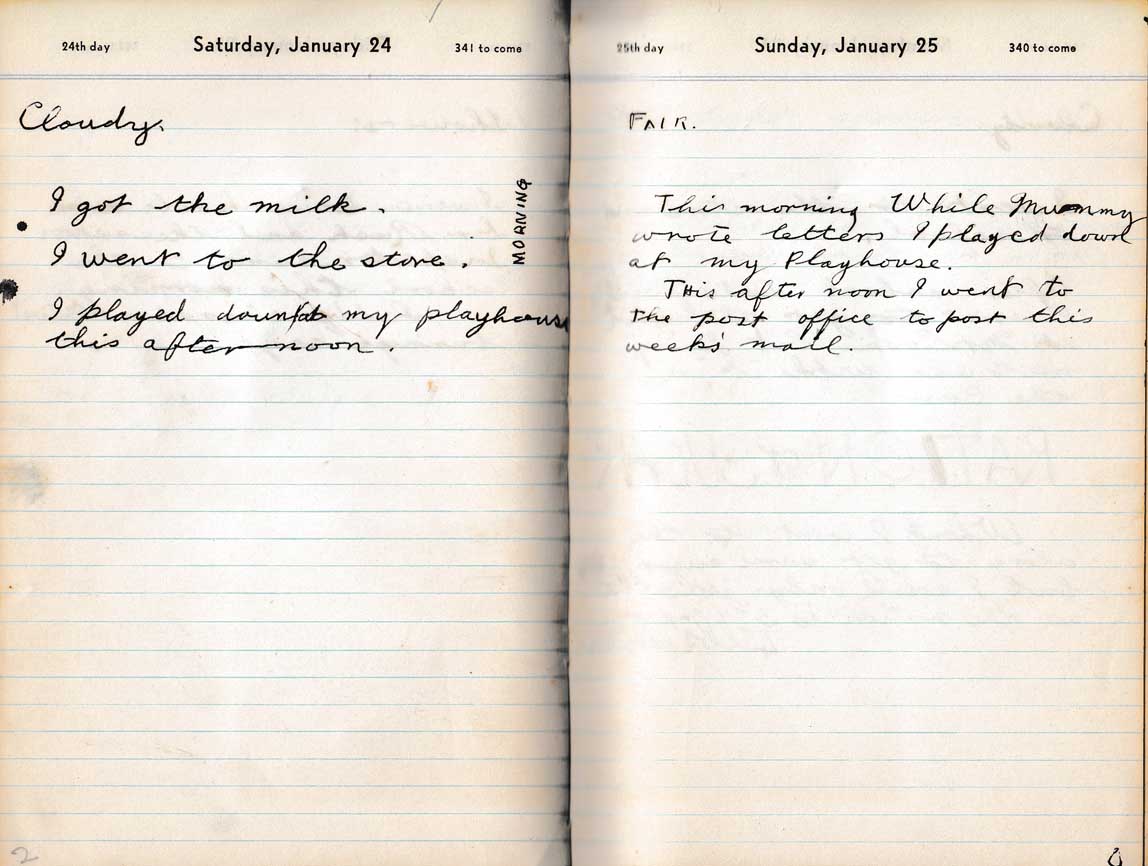 24th day Saturday, January 24 341 to come
Cloudy.
I got the milk.
MORNING
I went to the store.
I played down at my playhouse
this after noon.
25th day Sunday, January 25 340 to come
FAIR.
This morning While Mummy
wrote letters I played down
at my Playhouse.
THis after noon I went to
the post office to post this
week's mail.